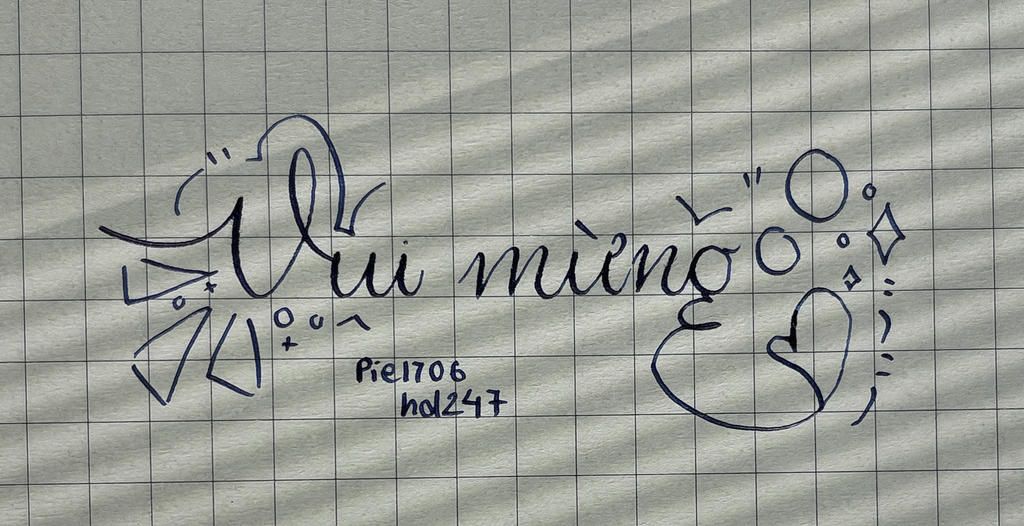 Vui miệng
Pie1706
hol247